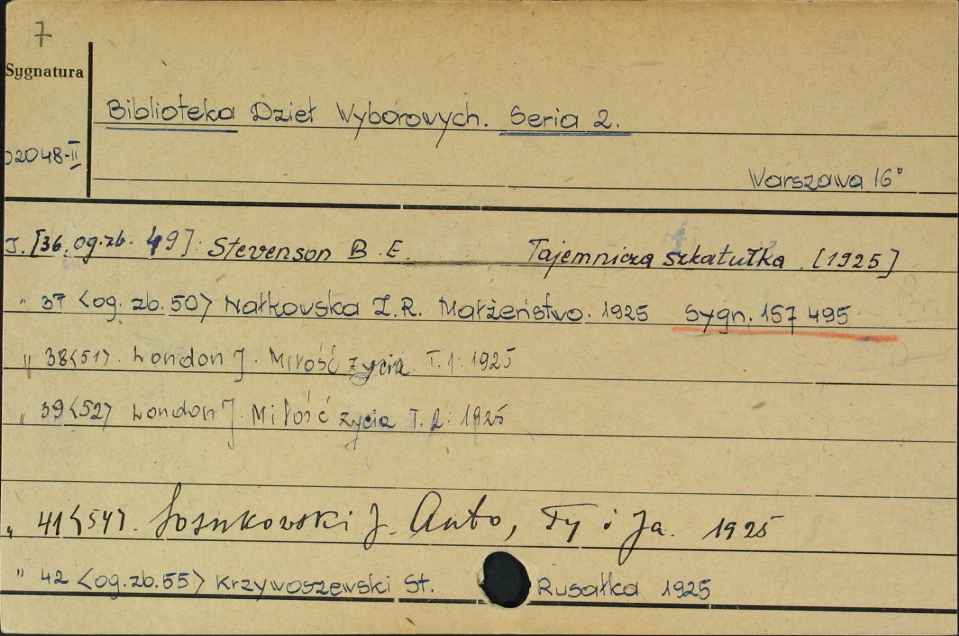 7
Sygnatura
Biblioteka Dzieł Wyborowych. Seria 2.
02048-II
Warszawa 16°
T. [36. og. zb. 49]: Stevenson B. E. Tajemnicza szkatułka. [1925]
" 37 <og. zb. 50> Nałkowska Z. R. Małżeństwo. 1925 Sygn. 157 495
" 38<51>. London J. Miłość życia. T. 1: 1925
" 39<52> London J. Miłość życia T. 2: 1925
" 41<54>. Sosnkowski J. Auto, Ty i Ja. 1925
" 42 <og. zb. 55> Krzywoszewski St. Rusałka 1925